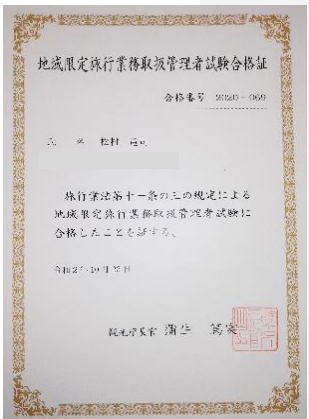 地域限定旅行業務取扱管理者試験合格証
合格番号 2020-069
氏名 松村
旅行業法第十一条の三の規定による
地域限定旅行業務取扱管理者試験に
合格したことを証する。
令和2年10月
観光庁長官 蒲生 篤実